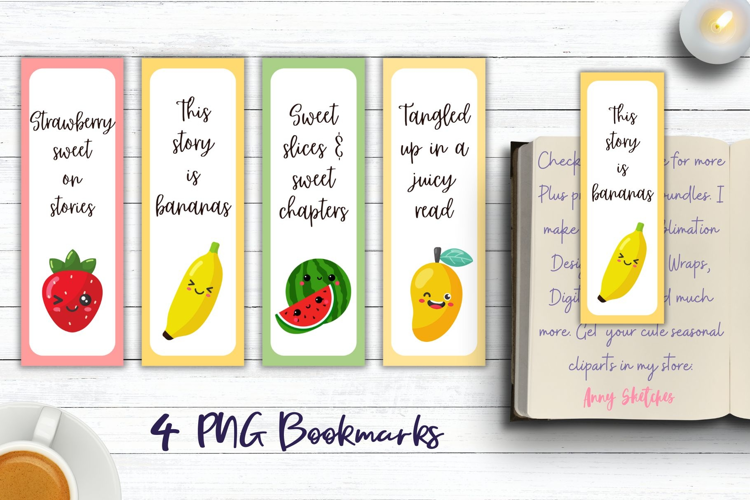 Strawberry
sweet
on
stories
This
story
is
bananas
Sweet
slices &
sweet
chapters
Tangled
up in a
juicy
read
This
story
is
bananas
Check e for more
Plus p bundles. I
make blimation
Desi Wraps,
Digit d much
more. Get your cute seasonal
cliparts in my store.
Anny Sketches
4 PNG Bookmarks